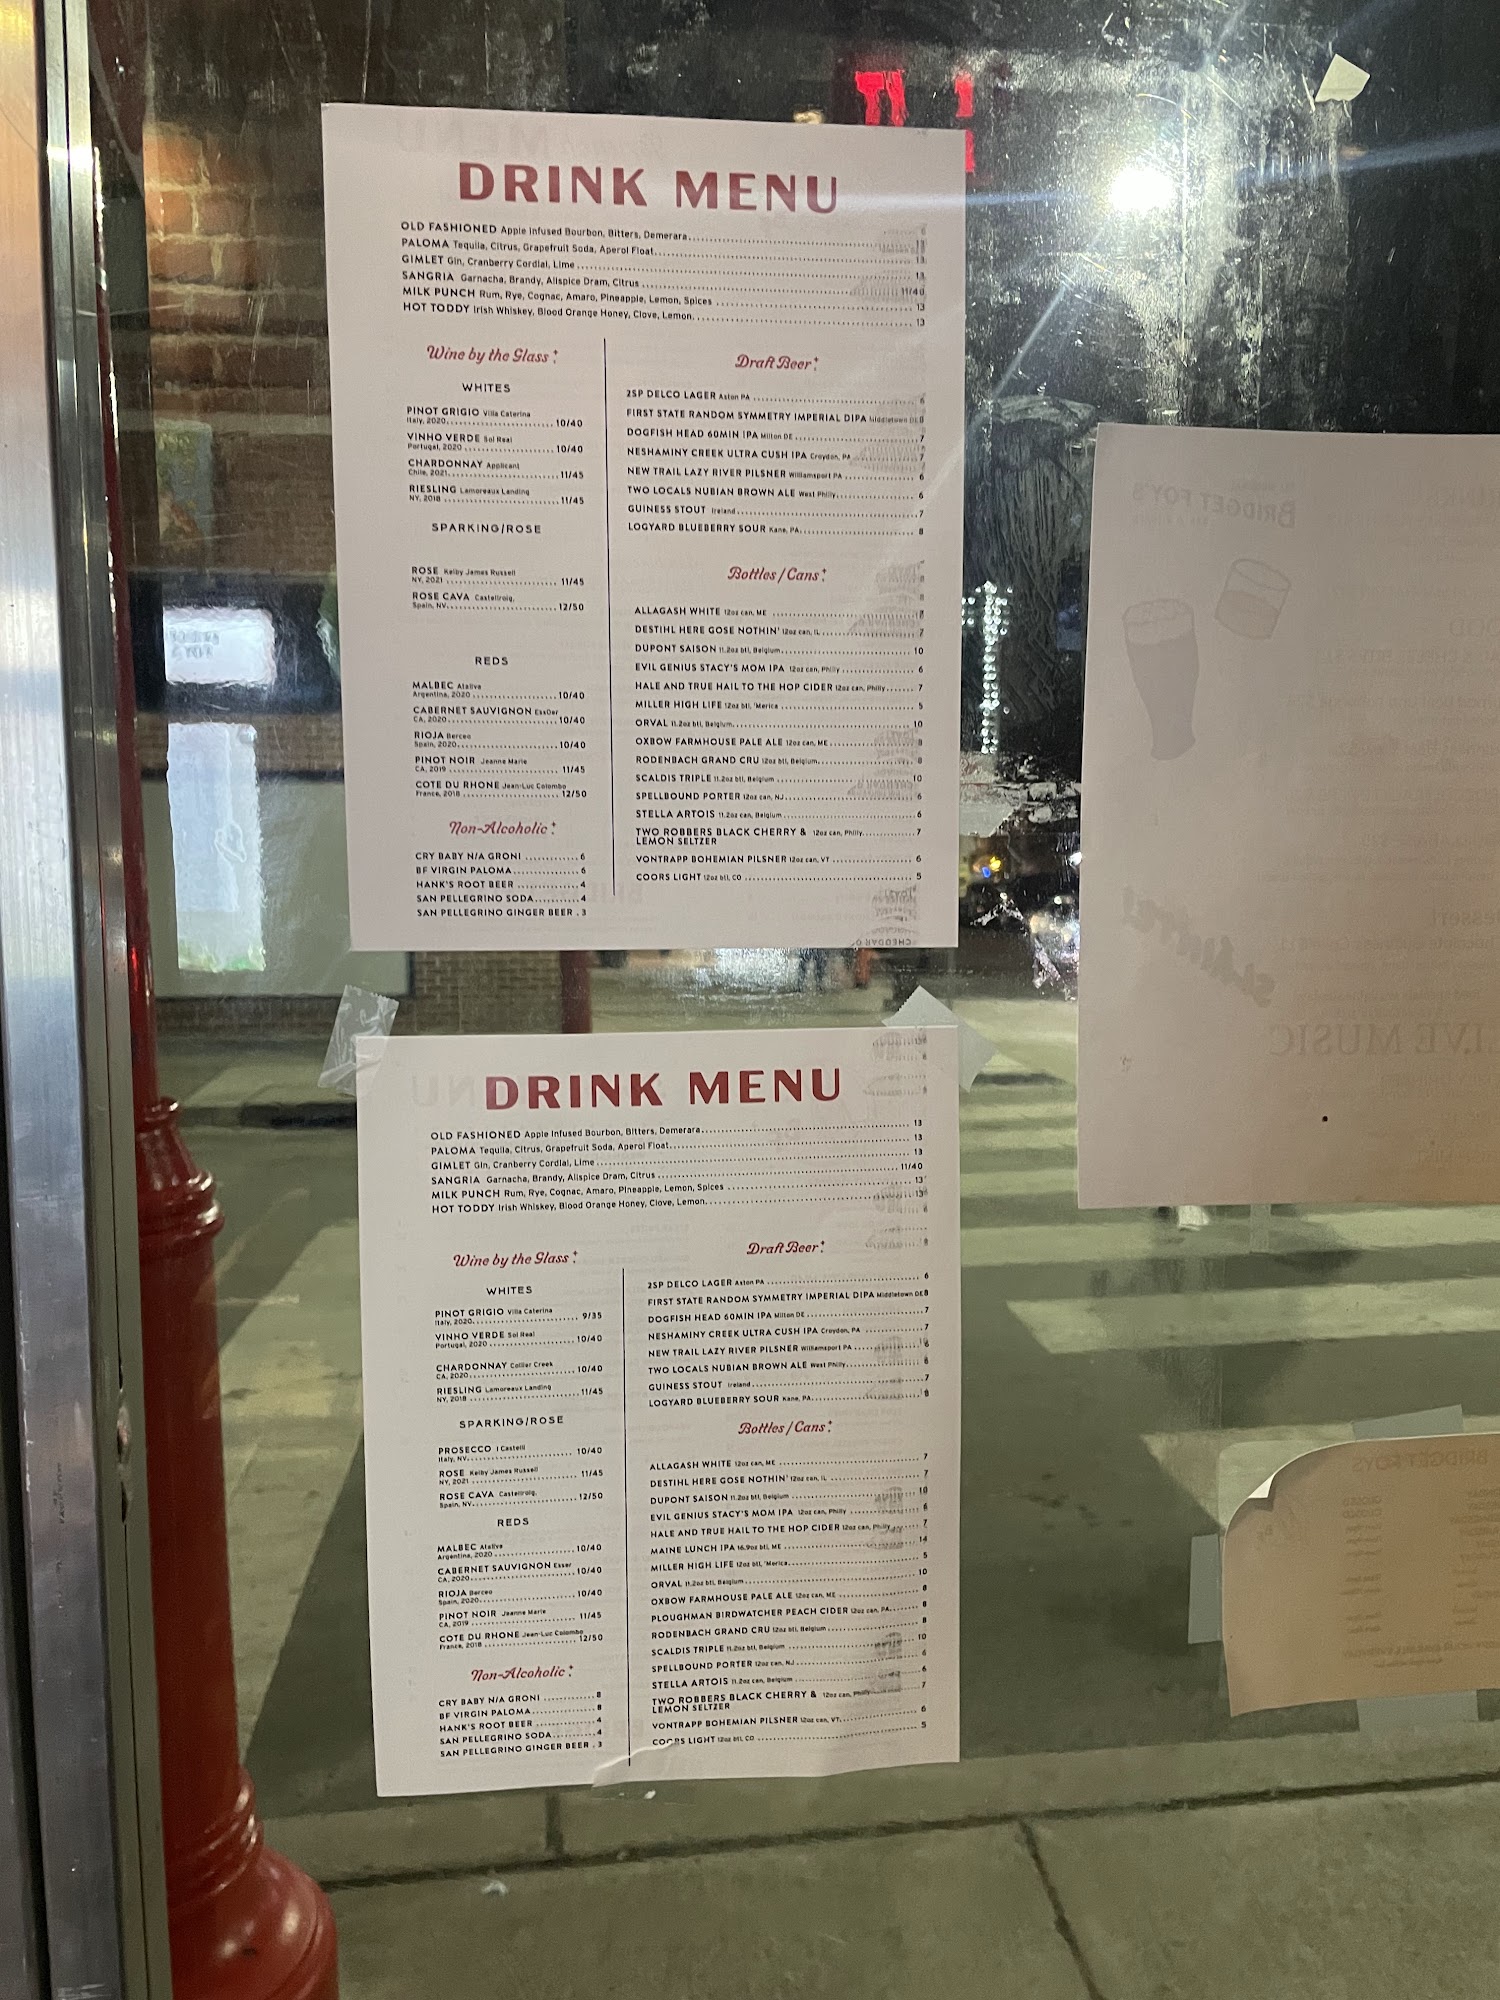 DRINK MENU
OLD FASHIONED Apple Infused Bourbon, Bitters, Demerara
PALOMA Tequila, Citrus, Grapefruit Soda, Aperol Float 13
GIMLET Gin, Cranberry Cordial, Lime 13
SANGRIA Garnacha, Brandy, Allspice Dram, Citrus 13
MILK PUNCH Rum, Rye, Cognac, Amaro, Pineapple, Lemon, Spices 11/40
HOT TODDY Irish Whiskey, Blood Orange Honey, Clove, Lemon. 13
13
Wine by the Glass
WHITES
PINOT GRIGIO Villa Caterina
Italy, 2020 10/40
VINHO VERDE Sol Real
Portugal, 2020 10/40
CHARDONNAY Applicant
Chile, 2021 11/45
RIESLING Lamoreaux Landing
NY, 2018 11/45
SPARKING/ROSE
ROSE Kelby James Russell
NY, 2021 11/45
ROSE CAVA Castellroig,
Spain, NV 12/50
REDS
MALBEC Atalive
Argentina, 2020 10/40
CABERNET SAUVIGNON EssOer
CA, 2020 10/40
RIOJA Berceo
Spain, 2020 10/40
PINOT NOIR Jeanne Marie
CA, 2019 11/45
COTE DU RHONE Jean-Luc Colombo
France, 2018 12/50
Non-Alcoholic
CRY BABY N/A GRONI 6
BF VIRGIN PALOMA 6
HANK'S ROOT BEER 4
SAN PELLEGRINO SODA 4
SAN PELLEGRINO GINGER BEER . 3
Draft Beer
2SP DELCO LAGER Aston PA 6
FIRST STATE RANDOM SYMMETRY IMPERIAL DIPA Middletown DE 8
DOGFISH HEAD 60MIN IPA Milton DE 7
NESHAMINY CREEK ULTRA CUSH IPA Croydon, PA 7
NEW TRAIL LAZY RIVER PILSNER Williamsport PA 6
TWO LOCALS NUBIAN BROWN ALE West Philly 6
GUINESS STOUT Ireland 7
LOGYARD BLUEBERRY SOUR Kane, PA 8
Bottles/Cans
ALLAGASH WHITE 12oz can, ME 8
DESTIHL HERE GOSE NOTHIN' 12oz can, IL 7
DUPONT SAISON 11.2oz btl, Belgium 10
EVIL GENIUS STACY'S MOM IPA 12oz can, Philly 6
HALE AND TRUE HAIL TO THE HOP CIDER 12oz can, Philly 7
MILLER HIGH LIFE 12oz btl, 'Merica 5
ORVAL 11.2oz btl, Belgium 10
OXBOW FARMHOUSE PALE ALE 12oz can, ME 8
RODENBACH GRAND CRU 12oz btl, Belgium 8
SCALDIS TRIPLE 11.2oz btl, Belgium 10
SPELLBOUND PORTER 12oz can, NJ 6
STELLA ARTOIS 11.2oz can, Belgium 6
TWO ROBBERS BLACK CHERRY & 12oz can, Philly 7
LEMON SELTZER
VONTRAPP BOHEMIAN PILSNER 12oz can, VT 6
COORS LIGHT 12oz btl, CO 5
DRINK MENU
OLD FASHIONED Apple Infused Bourbon, Bitters, Demerara 13
PALOMA Tequila, Citrus, Grapefruit Soda, Aperol Float 13
GIMLET Gin, Cranberry Cordial, Lime 13
SANGRIA Garnacha, Brandy, Allspice Dram, Citrus 11/40
MILK PUNCH Rum, Rye, Cognac, Amaro, Pineapple, Lemon, Spices 13
HOT TODDY Irish Whiskey, Blood Orange Honey, Clove, Lemon. 13
Wine by the Glass
WHITES
PINOT GRIGIO Villa Caterina
Italy, 2020 9/35
VINHO VERDE Sol Real
Portugal, 2020 10/40
CHARDONNAY Collier Creek
CA, 2020 10/40
RIESLING Lamoreaux Landing
NY, 2018 11/45
SPARKING/ROSE
PROSECCO I Castelli
Italy, NV 10/40
ROSE Kelby James Russell
NY, 2021 11/45
ROSE CAVA Castellroig,
Spain, NV 12/50
REDS
MALBEC Atalive
Argentina, 2020 10/40
CABERNET SAUVIGNON Esser
CA, 2020 10/40
RIOJA Berceo
Spain, 2020 10/40
PINOT NOIR Jeanne Marie
CA, 2019 11/45
COTE DU RHONE Jean-Luc Colombo
France, 2018 12/50
Non-Alcoholic
CRY BABY N/A GRONI 8
BF VIRGIN PALOMA 8
HANK'S ROOT BEER 4
SAN PELLEGRINO SODA 4
SAN PELLEGRINO GINGER BEER . 3
Draft Beer
2SP DELCO LAGER Aston PA 6
FIRST STATE RANDOM SYMMETRY IMPERIAL DIPA Middletown DE 8
DOGFISH HEAD 60MIN IPA Milton DE 7
NESHAMINY CREEK ULTRA CUSH IPA Croydon, PA 7
NEW TRAIL LAZY RIVER PILSNER Williamsport PA 6
TWO LOCALS NUBIAN BROWN ALE West Philly 6
GUINESS STOUT Ireland 7
LOGYARD BLUEBERRY SOUR Kane, PA 8
Bottles/Cans
ALLAGASH WHITE 12oz can, ME 7
DESTIHL HERE GOSE NOTHIN' 12oz can, IL 7
DUPONT SAISON 11.2oz btl, Belgium 10
EVIL GENIUS STACY'S MOM IPA 12oz can, Philly 6
HALE AND TRUE HAIL TO THE HOP CIDER 12oz can, Philly 7
MAINE LUNCH IPA 16.9oz btl, ME 14
MILLER HIGH LIFE 12oz btl, 'Merica 5
ORVAL 11.2oz btl, Belgium 10
OXBOW FARMHOUSE PALE ALE 12oz can, ME 8
PLOUGHMAN BIRDWATCHER PEACH CIDER 12oz can, PA 8
RODENBACH GRAND CRU 12oz btl, Belgium 8
SCALDIS TRIPLE 11.2oz btl, Belgium 10
SPELLBOUND PORTER 12oz can, NJ 6
STELLA ARTOIS 11.2oz can, Belgium 6
TWO ROBBERS BLACK CHERRY & 12oz can, Philly 7
LEMON SELTZER
VONTRAPP BOHEMIAN PILSNER 12oz can, VT 6
COORS LIGHT 12oz btl, CO 5
BRIDGET FOY'S
LIVE MUSIC